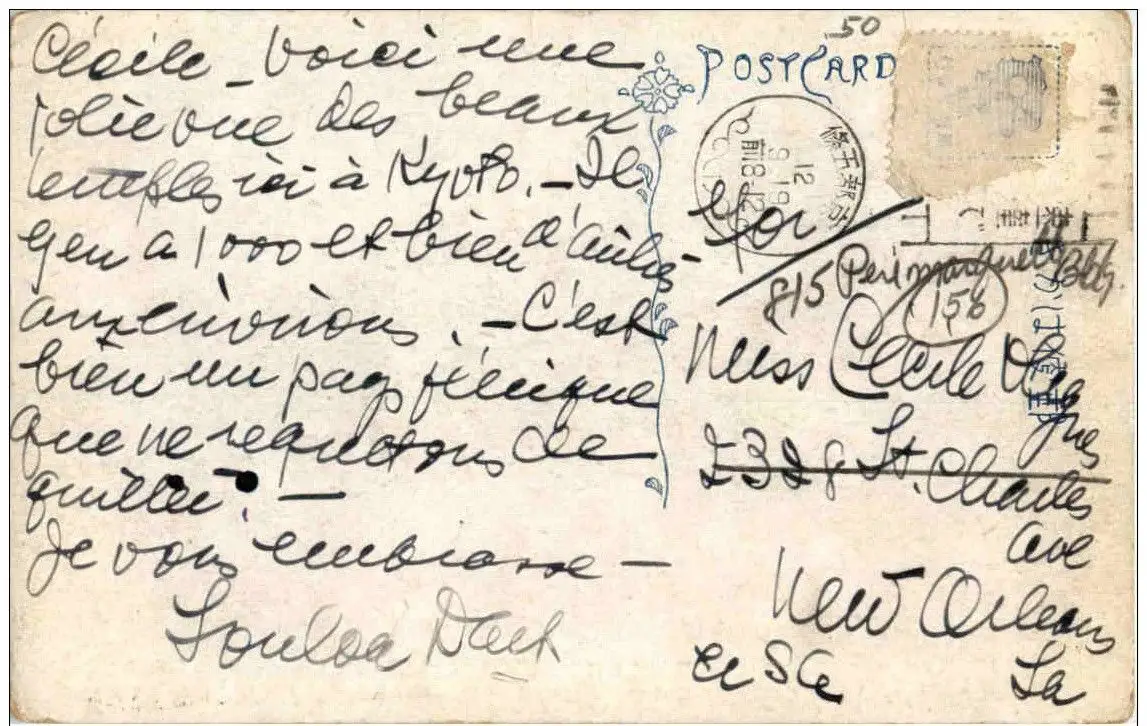 Cécile – Voici une
jolie vue des beaux
temples ici à Kyoto. – Il
y en a 1000 et bien d'autres
aux environs. – C'est
bien un pays féerique
que ne regrettons de
quitter. –
Je vous embrasse –
50
POSTCARD
12
9 19
前 8-12
815 Peri marquette Bldg.
158
Miss Cecile
2328 St. Charles
Ave
New Orleans
La